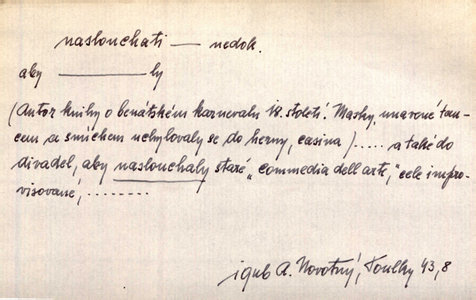 naslouchati — nedok.
aby ——— ly
(Autor knihy o benátském karnevalu 18. století. Masky, unavené tan-
cem a smíchem uchylovaly se do herny, casina)..... a také do
divadel, aby naslouchaly staré „commedia dell'arte,“ cele impro-
visované, ........
A. Novotný, Toulky 43, 8